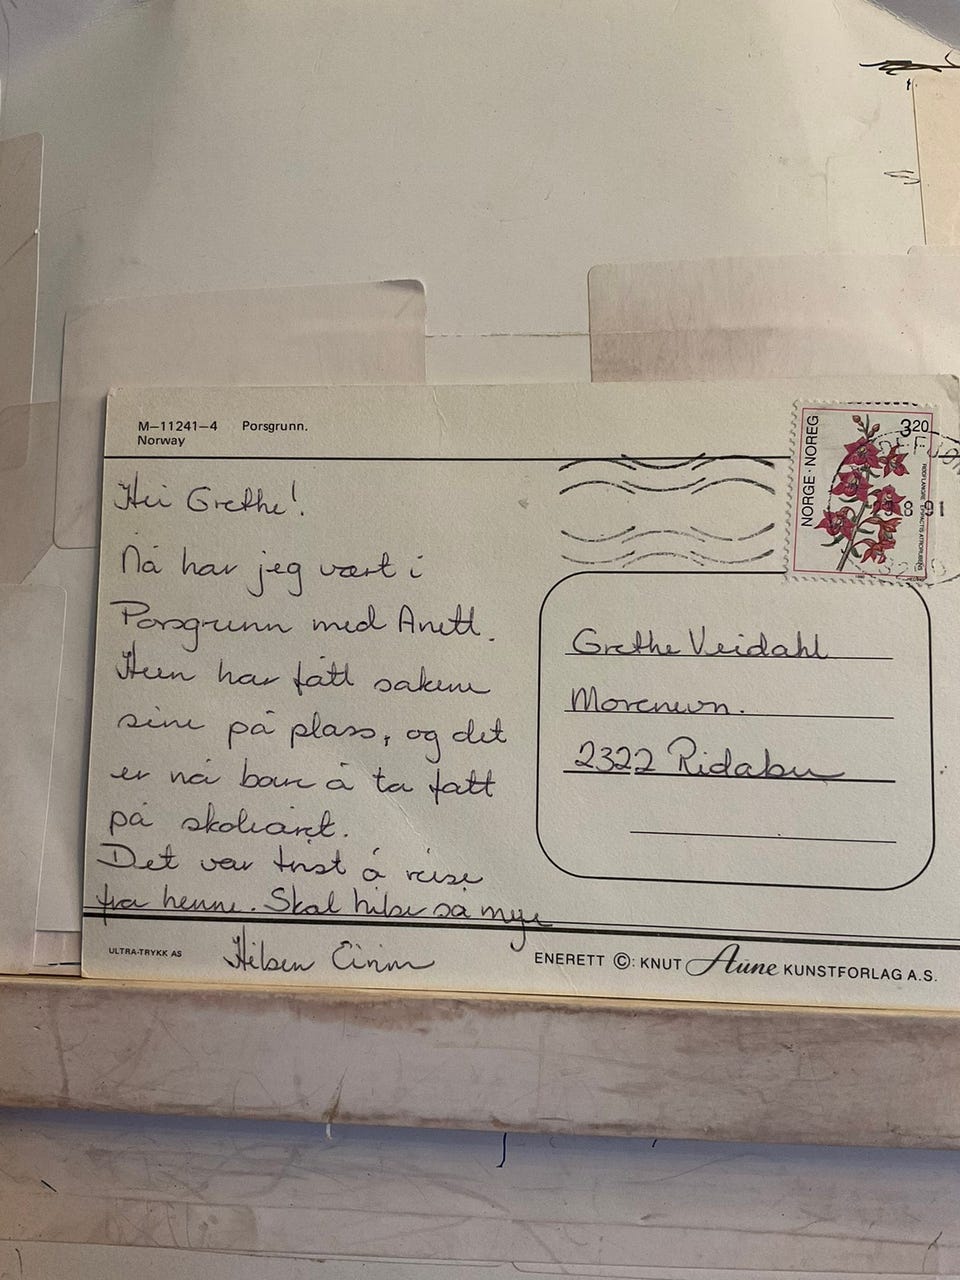 M–11241–4 Porsgrunn.
Norway
NORGE·NOREG
3 20
Hei Grethe!
Nå har jeg vært i
Porsgrunn med Anett.
Hun har fått sakene
sine på plass, og det
er nå bare å ta fatt
på skoleåret.
Det var trist å reise
fra henne. Skal hilse så mye
Hilsen
Grethe Veidahl
Morenevn.
2322 Ridabu
ULTRA-TRYKK AS
ENERETT ©: KNUT Aune KUNSTFORLAG A.S.